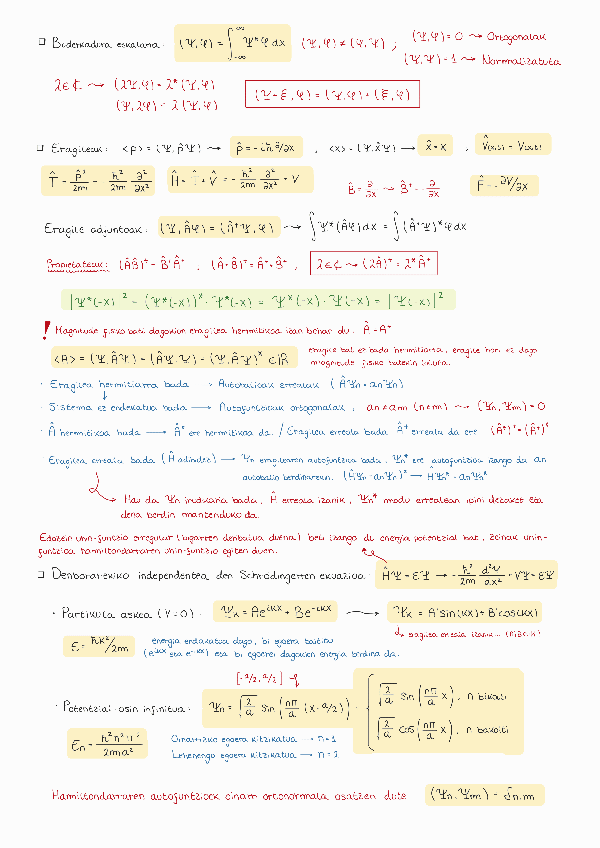 □ Biderkadura eskalarra: (Ψ,φ) = ∫_{-∞}^{∞} Ψ*φ dx (Ψ,φ) ≠ (φ,Ψ) ; (Ψ,φ) = 0 → Ortogonalak
(Ψ,Ψ) = 1 → Normalizatuta
λ∈ℂ → (λΨ,φ) = λ*(Ψ,φ)
(Ψ,λφ) = λ(Ψ,φ)
(Ψ+ξ,φ) = (Ψ,φ) + (ξ,φ)
□ Eragileak: <p> = (Ψ,p̂Ψ) → p̂ = -iħ ∂/∂x , <x> = (Ψ,x̂Ψ) → x̂ = x , V̂(x,t) = V(x,t)
T̂ = p̂²/2m = -ħ²/2m ∂²/∂x² Ĥ = T̂ + V̂ = -ħ²/2m ∂²/∂x² + V
B̂ = ∂/∂x → B̂⁺ = -∂/∂x F̂ = -∂V/∂x
Eragile adjuntoak: (Ψ,Âφ) = (Â⁺Ψ,φ) → ∫Ψ*(Âφ)dx = ∫(Â⁺Ψ)*φdx
Propietateak: (ÂB̂)⁺ = B̂⁺Â⁺ , (Â+B̂)⁺ = Â⁺+B̂⁺ , λ∈ℂ → (λÂ)⁺ = λ*Â⁺
|Ψ*(-x)|² = (Ψ*(-x))*·Ψ*(-x) = Ψ*(-x)·Ψ(-x) = |Ψ(-x)|²
! Magnitude fisiko bati dagokion eragilea hermitikoa izan behar du: Â = A⁺
<A> = (Ψ,ÂΨ) = (ÂΨ,Ψ) = (Ψ,ÂΨ)* ∈ℝ
eragile bat ez bada hermitiarra, eragile hori ez dago
magnitude fisiko batekin lotuta.
· Eragilea hermitiarra bada → Autobalioak errealak (ÂΨn = anΨn)
· Sistema ez endekatua bada → Autofuntzioak ortogonalak , an≠am (n≠m) → (Ψn,Ψm) = 0
· Â hermitikoa bada → Â* ere hermitikoa da. / Eragilea erreala bada Â⁺ erreala da ere (Â*)⁺ = (Â⁺)*
Eragilea erreala bada (Ĥ adibidez) → Ψn eragilearen autofuntzioa bada, Ψn* ere autofuntzioa izango da an
autobalio berdinarekin. (ĤΨn = anΨn)* → ĤΨn* = anΨn*
Hau da, Ψn irudikaria bada, Ĥ erreala izanik, Ψn* modu errealean ipini dezaket eta
dena berdin mantenduko da.
Edozein uhin-funtzio erregular (bigarren deribatua duena) beti izango du energia potentzial bat, zeinak uhin-
funtzioa hamiltondarraren uhin-funtzio egiten duen.
□ Denborarekiko independentea den Schrodingerren ekuazioa: ĤΨ = EΨ → -ħ²/2m d²Ψ/dx² + VΨ = EΨ
· Partikula askea (V=0): Ψk = Ae^{ikx} + Be^{-ikx} → Ψk = A'sin(kx) + B'cos(kx)
E = ħk²/2m
energia endekatua dago, bi egoera baititu
(e^{ikx} eta e^{-ikx}) eta bi egoerei dagokien energia berdina da.
[-a/2, a/2]
· Potentzial-osin infinitua: Ψn = √(2/a) sin(nπ/a (x+a/2)) = { √(2/a) sin(nπ/a x), n bikoiti
√(2/a) cos(nπ/a x), n bakoiti
En = ħ²n²π²/2ma²
Oinarrizko egoera kitzikatua → n=1
Lehenengo egoera kitzikatua → n=2
Hamiltondarraren autofuntzioek oinarri ortonormala osatzen dute (Ψn,Ψm) = δn,m